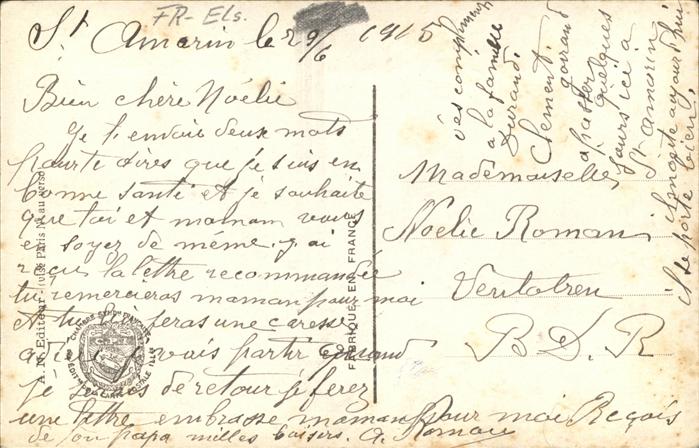 FR-Els.
St Amarin le 29/6 1915
Bien chère Noélie
Je t'envoie deux mots
pour te dires que je suis en
bonne santé et je souhaite
que toi et maman vous
en soyez de même. j'ai
reçu la lettre recommandée
tu remercieras maman pour moi
feras une caresse
vais partir
je de retour je ferez
une lettre embrasse maman pour moi Reçois
de ton papa milles baisers. G. Roman
Mademoiselle
Noélie Roman
Ventabren
B. D. R
des compliments
a la famille
Durand.
Clement.
Gouand
a passer
quelques
jours ici à
St Amarin
aujourd'hui
il se porte bien
FABRIQUÉ EN FRANCE
CHAMBRE SYNDICALE FRANÇAISE
CARTE POSTALE ILLEE